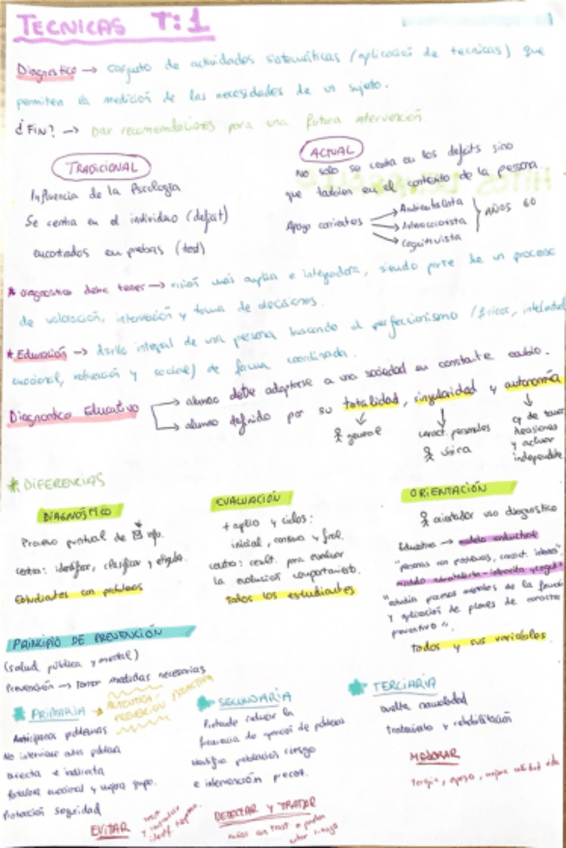 TECNICAS T:1
Diagnostico → conjunto de actividades sistemáticas (aplicación de tecnicas) que
permiten la medición de las necesidades de un sujeto.
¿FIN? → Dar recomendaciones para una futura intervención
TRADICIONAL
Influencia de la Psicología
Se centra en el individuo (deficit)
encontrados en pruebas (test)
ACTUAL
No solo se centra en los deficits sino
que tambien en el contexto de la persona
Apoyo corrientes
Ambientalista
Interaccionista
Cognitivista
AÑOS 60
* Diagnostico debe tener → visión más amplia e integradora, siendo parte de un proceso
de valoración, intervención y toma de decisiones.
* Educación → dsrllo integral de una persona buscando el perfeccionismo (físicos, intelectual
emocional, motivación y social) de forma coordinada.
Diagnostico Educativo
→ alumno debe adaptarse a una sociedad en constante cambio.
→ alumno definido por su totalidad, singularidad y autonomía
general
caract. personales
única
cp de tomar
decisiones
y actuar
independiente
* DIFERENCIAS
DIAGNÓSTICO
Proceso puntual de info.
Centra: identificar, clasificar y
Estudiantes con problemas
EVALUACIÓN
+ amplio y ciclos:
inicial, continua y final.
centra: result. para evaluar
la evolución comportamiento.
Todos los estudiantes
ORIENTACIÓN
orientador uso diagnostico
Educativa → modelo conductual
"personas con problemas, caract.
"estudia procesos mentales de la
y aplicación de planes de caracter
preventivo".
Todos y sus variables
PRINCIPIO DE PREVENCIÓN
(salud pública y mental)
Prevención → tomar medidas necesarias
PRIMARIA → AUTENTICA PREVENCIÓN PROACTIVA
Anticiparse problemas
No intervenir
directa e indirecta
fortalece emocional y mejora grupo.
Protección seguridad
EVITAR
SECUNDARIA
Pretende reducir la
frecuencia de aparición de problemas
identifica población riesgo
e intervención precoz.
DETECTAR Y TRATAR
TERCIARIA
vuelta normalidad
tratamiento y rehabilitación
MEJORAR
Terapia, apoyo, mejora calidad vida